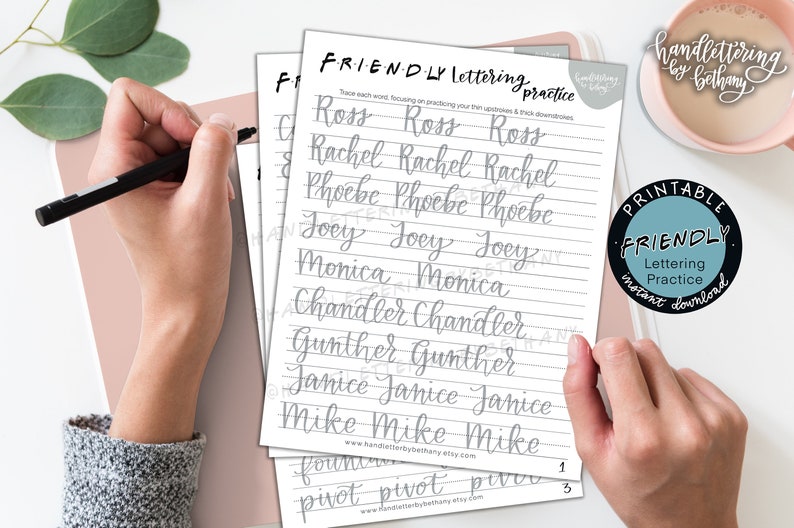 F·R·I·E·N·D·L·Y Lettering
practice
handlettering
by bethany
Trace each word, focusing on practicing your thin upstrokes & thick downstrokes.
Ross Ross Ross
Rachel Rachel Rachel
Phoebe Phoebe Phoebe
Joey Joey Joey
Monica Monica
Chandler Chandler
Gunther Gunther
Janice Janice Janice
Mike Mike Mike
www.handletterbybethany.etsy.com
1
@HANDLETTERINGBYBETHANY
@HANDLETTERINGBYBETHANY
@HANDLETTERINGBYBETHANY
fountain
pivot pivot pivot
www.handletterbybethany.etsy.com
3
handlettering
by bethany
PRINTABLE
FRIENDLY
Lettering
Practice
instant download